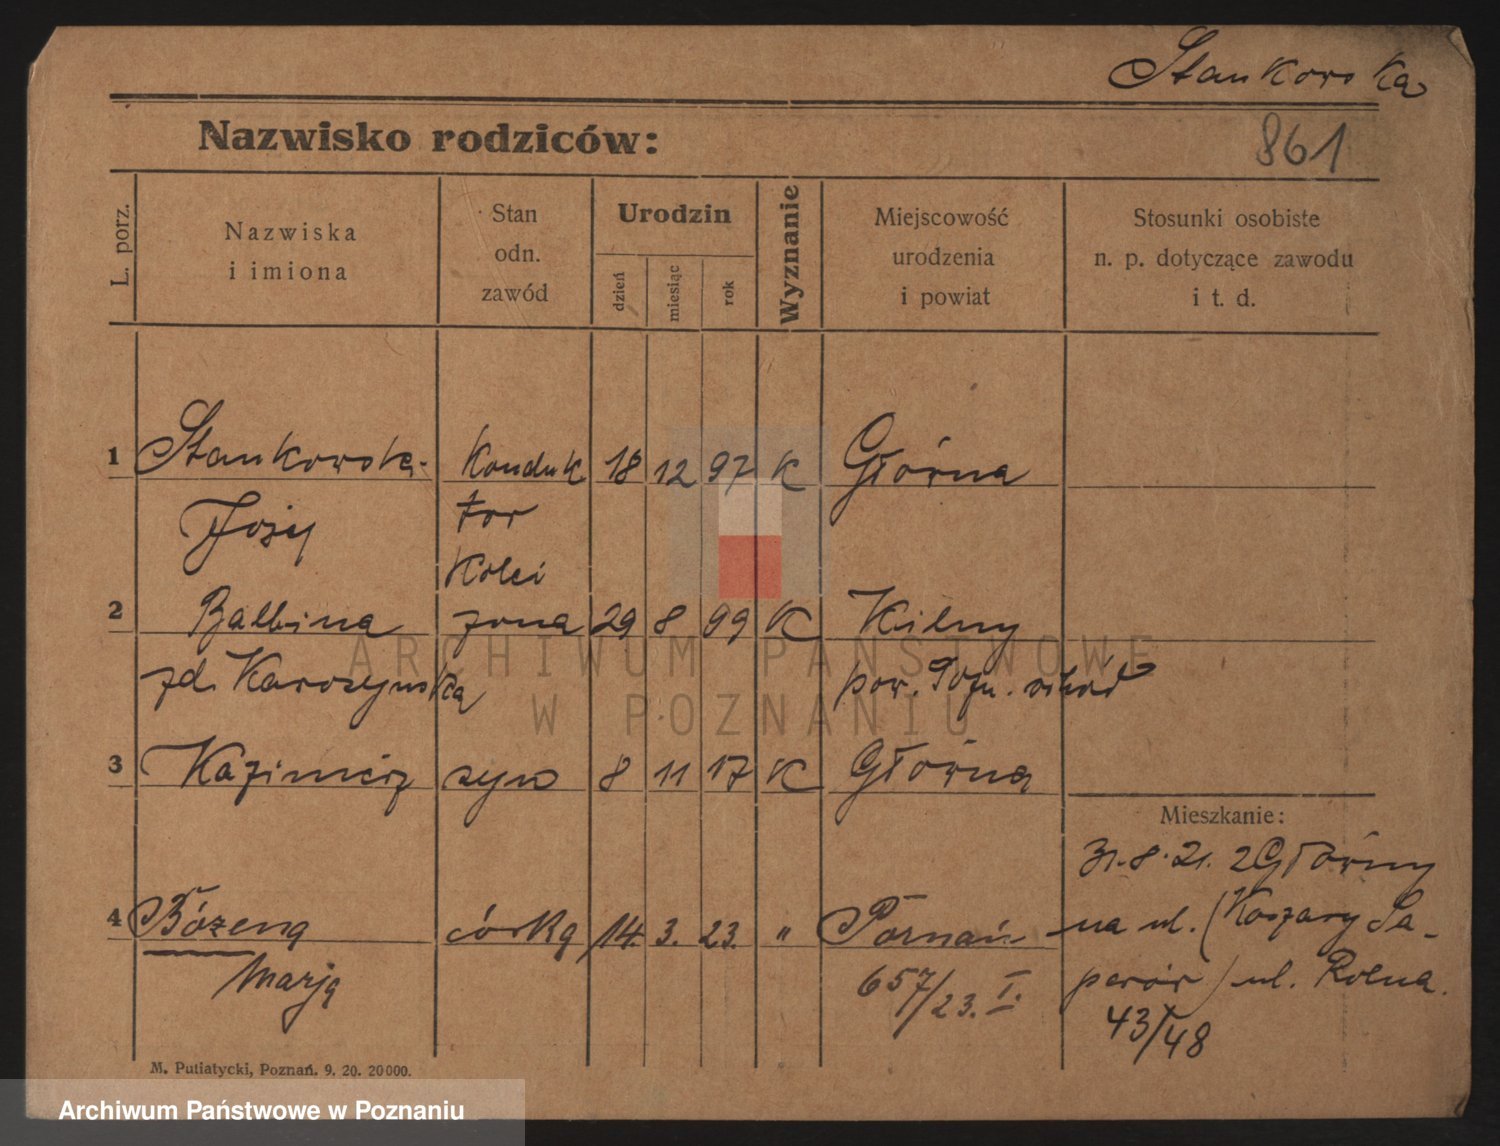 Stankowska
Nazwisko rodziców:
861
L. porz.
Nazwiska
i imiona
Stan
odn.
zawód
Urodzin
dzień
miesiąc
rok
Wyznanie
Miejscowość
urodzenia
i powiat
Stosunki osobiste
n. p. dotyczące zawodu
i t. d.
1 Konduk 18 12 97 K Główna
tor
Kolei
2 Balbina zona 29 8 99 K
zd.
pow. Pozn.
3 Kazimierz syn 8 11 17 K Główna
Mieszkanie:
31.8.21. z Główny
4 Bózena córka 14. 3. 23. " Poznań na ul. (Koszary Sa-
Marja
657/23. I. perów) ul. Rolna.
43/48
M. Putiatycki, Poznań. 9. 20. 20000.
ARCHIWUM PAŃSTWOWE
W POZNANIU
Archiwum Państwowe w Poznaniu